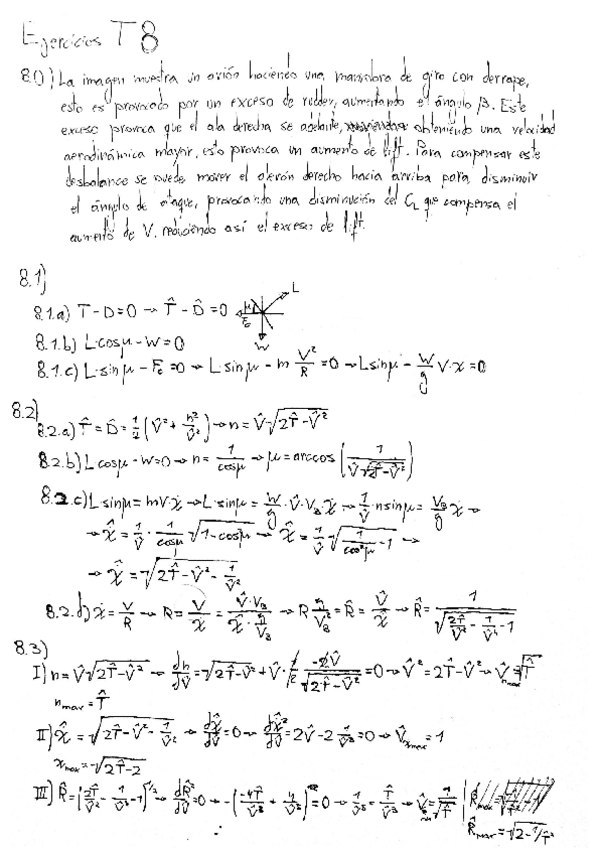 Ejercicios T8
8.0) La imagen muestra un avión haciendo una maniobra de giro con derrape,
esto es provocado por un exceso de rudder, aumentando el ángulo β. Este
exceso provoca que el ala derecha se adelante, obteniendo una velocidad
aerodinámica mayor, esto provoca un aumento de lift. Para compensar este
desbalance se puede mover el alerón derecho hacia arriba para disminuir
el ángulo de ataque, provocando una disminución del C_L que compensa el
aumento de V, reduciendo así el exceso de lift.
8.1)
8.1.a) T-D=0 → T̂-D̂=0
L
μ
F_c
W
8.1.b) L·cosμ-W=0
8.1.c) L·sinμ-F_c=0 → L·sinμ-m V²/R=0 → Lsinμ - W/g V·ẋ=0
8.2)
8.2.a) T̂=D̂=1/2(V̂²+n²/V̂²) → n=V̂√(2T̂-V̂²)
8.2.b) Lcosμ-W=0 → n=1/cosμ → μ=arccos(1/(V̂√(2T̂-V̂²)))
8.2.c) L sinμ=mVẋ → L·sinμ=W/g·V̂·V_B·ẋ → 1/V̂·nsinμ=V_B/g ẋ →
→ x̂=1/V̂·1/cosμ √(1-cos²μ) → x̂=1/V̂√(1/cos²μ-1) →
→ x̂=√(2T̂-V̂²-1/V̂²)
8.2.d) ẋ=V/R → R=V/ẋ=V̂·V_B/(x̂·g/V_B) → R g/V_B²=R̂=V̂/x̂ → R̂=1/√(2T̂/V̂²-1/V̂⁴-1)
8.3)
I) n=V̂√(2T̂-V̂²) → dn/dV̂=√(2T̂-V̂²)+V̂·1/2·(-2V̂)/√(2T̂-V̂²)=0 → V̂²=2T̂-V̂² → V̂_nmax=√T̂
n_max=T̂
II) x̂=√(2T̂-V̂²-1/V̂²) → dx̂/dV̂=0 → dx̂²/dV̂=2V̂-2 1/V̂³=0 → V̂_xmax=1
x_max=√(2T̂-2)
III) R̂=(2T̂/V̂²-1/V̂⁴-1)^-1/2 → dR̂²/dV̂=0 → -(-4T̂/V̂³+4/V̂⁵)=0 → 1/V̂⁵=T̂/V̂³ → V̂=1/√T̂